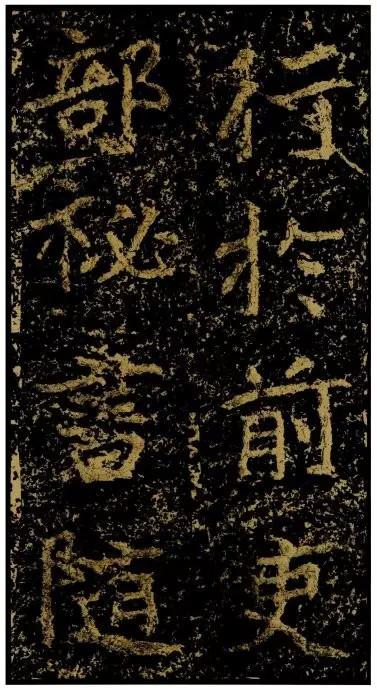 行於前吏
部秘書隨